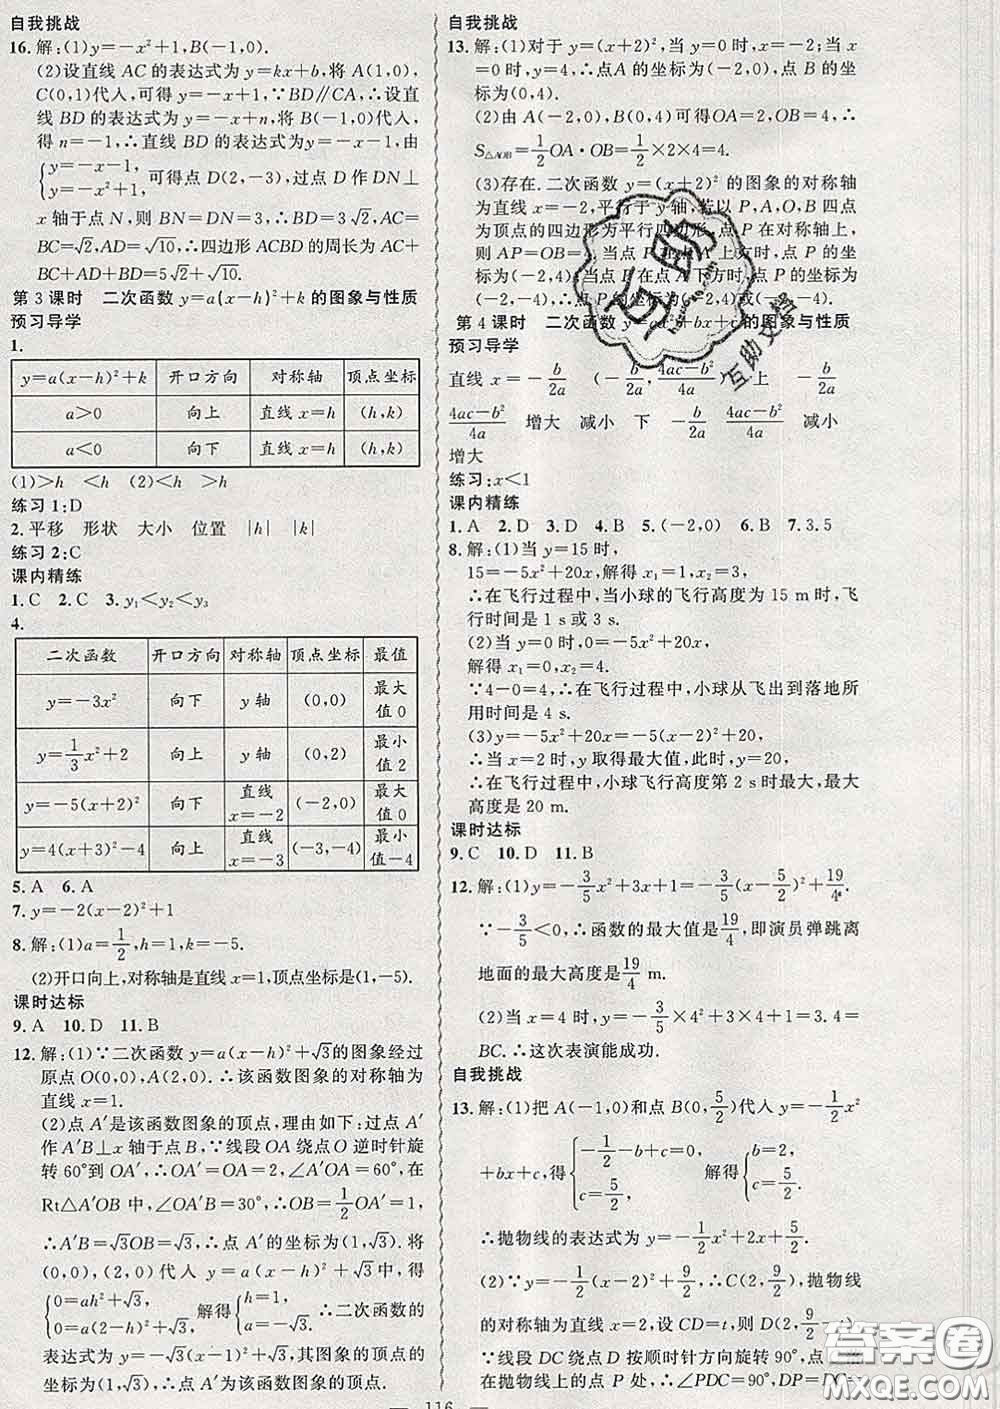 自我挑战
16.解:(1)y=-x²+1,B(-1,0).
(2)设直线 AC 的表达式为 y=kx+b,将 A(1,0),
C(0,1)代人,可得 y=-x+1,∵BD∥CA,∴设直
线 BD 的表达式为 y=-x+n,将 B(-1,0)代人,
得 n=-1,∴直线 BD 的表达式为 y=-x-1,由
{y=-x-1, y=-x²+1, 可得点 D(2,-3),过点 D 作 DN⊥
x 轴于点 N,则 BN=DN=3,∴BD=3√2,AC=
BC=√2,AD=√10,∴四边形 ACBD 的周长为 AC+
BC+BD+AD=5√2+√10.
第 3 课时 二次函数 y=a(x-h)²+k 的图象与性质
预习导学
1.
y=a(x-h)²+k 开口方向 对称轴 顶点坐标
a>0 向上 直线 x=h (h,k)
a<0 向下 直线 x=h (h,k)
(1)>h <h (2)<h >h
练习 1:D
2.平移 形状 大小 位置 |h| |k|
练习 2:C
课内精练
1.C 2.C 3.y₁<y₂<y₃
4.
二次函数 开口方向 对称轴 顶点坐标 最值
y=-3x² 向下 y 轴 (0,0) 最大值 0
y=1/3x²+2 向上 y 轴 (0,2) 最小值 2
y=-5(x+2)² 向下 直线 x=-2 (-2,0) 最大值 0
y=4(x+3)²-4 向上 直线 x=-3 (-3,-4) 最小值-4
5.A 6.A
7.y=-2(x-2)²+1
8.解:(1)a=1/2,h=1,k=-5.
(2)开口向上,对称轴是直线 x=1,顶点坐标是(1,-5).
课时达标
9.A 10.D 11.B
12.解:(1)∵二次函数 y=a(x-h)²+√3的图象经过
原点 O(0,0),A(2,0).∴该函数图象的对称轴为
直线 x=1.
(2)点 A′是该函数图象的顶点,理由如下:过点 A′
作 A′B⊥x 轴于点 B,∵线段 OA 绕点 O 逆时针旋
转 60°到 OA′,∴OA′=OA=2,∠A′OA=60°,在
Rt△A′OB 中,∠OA′B=30°,∴OB=1/2OA′=1,
∴A′B=√3OB=√3,∴点 A′的坐标为(1,√3).将
(0,0),(2,0)代入 y=a(x-h)²+√3 中,得
{0=ah²+√3, 0=a(2-h)²+√3, 解得{h=1, a=-√3,∴二次函数的
表达式为 y=-√3(x-1)²+√3,∴函数图象的顶点的
坐标为(1,√3),∴点 A′为该函数图象的顶点.
自我挑战
13.解:(1)对于 y=(x+2)²,当 y=0时,x=-2;当 x=
0 时,y=4,∴点A 的坐标为(-2,0),点 B 的坐
标为(0,4).
(2)由 A(-2,0),B(0,4)可得OA=2,OB=4,∴
S△AOB=1/2OA·OB=1/2×2×4=4.
(3)存在.二次函数 y=(x+2)² 的图象的对称轴
为直线 x=-2,平行于 y 轴,若以 P,A,O,B 四点
为顶点的四边形为平行四边形,点 P 在对称轴上,
则 AP=OB=4,当点 P 在点 A 上方时,点 P 的坐标为
(-2,4);当点 P 在点 A 下方时,点 P 的坐标为
(-2,-4),∴点 P 的坐标为(-2,4)或(-2,-4).
第 4 课时 二次函数 y=ax²+bx+c 的图象与性质
预习导学
直线 x=-b/2a (-b/2a,(4ac-b²)/4a) 上 -b/2a
(4ac-b²)/4a 增大 减小 下 -b/2a (4ac-b²)/4a 减小
增大
练习:x<1
课内精练
1.A 2.D 3.D 4.B 5.(-2,0) 6.B 7.3.5
8.解:(1)当 y=15 时,
15=-5x²+20x,解得 x₁=1,x₂=3,
∴在飞行过程中,当小球的飞行高度为 15 m 时,飞
行时间是 1 s或 3 s.
(2)当 y=0时,0=-5x²+20x,
解得 x₁=0,x₂=4.
∵4-0=4,∴在飞行过程中,小球从飞出到落地所
用时间是 4 s.
(3)y=-5x²+20x=-5(x-2)²+20,
∴当 x=2 时,y 取得最大值,此时,y=20,
∴在飞行过程中,小球飞行高度第 2 s时最大,最大
高度是 20 m.
课时达标
9.C 10.D 11.B
12.解:(1)y=-3/5x²+3x+1=-3/5(x-5/2)²+19/4.
∵-3/5<0,∴函数的最大值是19/4,即演员弹跳离
地面的最大高度是19/4 m.
(2)当 x=4 时,y=-3/5×4²+3×4+1=3.4=
BC.∴这次表演能成功.
自我挑战
13.解:(1)把 A(-1,0)和点 B(0,5/2)代入 y=-1/2x²
+bx+c,得{-1/2-b+c=0, c=5/2. 解得{b=2, c=5/2.
∴抛物线的表达式为 y=-1/2x²+2x+5/2.
(2)∵y=-1/2(x-2)²+9/2,∴C(2,9/2),抛物线
的对称轴为直线 x=2,设 CD=t,则 D(2,9/2-t)
∵线段 DC 绕点 D 按顺时针方向旋转 90°,点
在抛物线上的点 P 处,∴∠PDC=90°,DP=DC=
116
互助
互助文学
答案圈
MXQE.COM